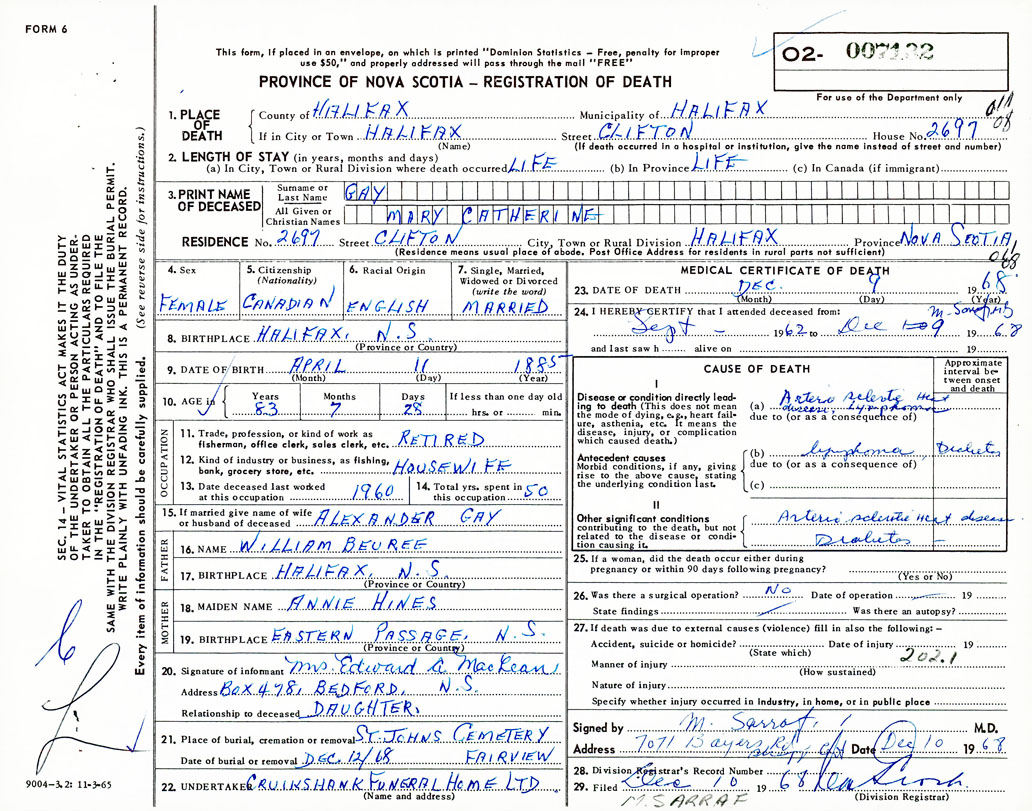 FORM 6
This form, if placed in an envelope, on which is printed "Dominion Statistics – Free, penalty for improper
use $50," and properly addressed will pass through the mail "FREE"
PROVINCE OF NOVA SCOTIA – REGISTRATION OF DEATH
02- 007132
For use of the Department only
1. PLACE OF DEATH
County of HALIFAX Municipality of HALIFAX
If in City or Town HALIFAX Street CLIFTON House No. 2697
(Name) (If death occurred in a hospital or institution, give the name instead of street and number)
2. LENGTH OF STAY (in years, months and days)
(a) In City, Town or Rural Division where death occurred LIFE (b) In Province LIFE (c) In Canada (if immigrant)
3. PRINT NAME OF DECEASED
Surname or Last Name GAY
All Given or Christian Names MARY CATHERINE
RESIDENCE No. 2697 Street CLIFTON City, Town or Rural Division HALIFAX Province NOVA SCOTIA
(Residence means usual place of abode. Post Office Address for residents in rural parts not sufficient)
068
4. Sex FEMALE
5. Citizenship (Nationality) CANADIAN
6. Racial Origin ENGLISH
7. Single, Married, Widowed or Divorced (write the word) MARRIED
8. BIRTHPLACE HALIFAX, N.S.
(Province or Country)
9. DATE OF BIRTH APRIL 11 1885
(Month) (Day) (Year)
10. AGE in Years 83 Months 7 Days 28 If less than one day old hrs. or min.
OCCUPATION
11. Trade, profession, or kind of work as fisherman, office clerk, sales clerk, etc. RETIRED
12. Kind of industry or business, as fishing, bank, grocery store, etc. HOUSEWIFE
13. Date deceased last worked at this occupation 1960
14. Total yrs. spent in this occupation 50
15. If married give name of wife or husband of deceased ALEXANDER GAY
FATHER
16. NAME WILLIAM BEUREE
17. BIRTHPLACE HALIFAX, N.S.
(Province or Country)
MOTHER
18. MAIDEN NAME ANNIE HINES
19. BIRTHPLACE EASTERN PASSAGE, N.S.
(Province or Country)
20. Signature of informant Mrs. Edward A MacLean
Address BOX 478, BEDFORD, N.S.
Relationship to deceased DAUGHTER.
21. Place of burial, cremation or removal ST. JOHNS CEMETERY
Date of burial or removal DEC. 12/68 FAIRVIEW
22. UNDERTAKER CRUIKSHANK FUNERAL HOME LTD.
(Name and address)
MEDICAL CERTIFICATE OF DEATH
23. DATE OF DEATH DEC. 9 1968
(Month) (Day) (Year)
24. I HEREBY CERTIFY that I attended deceased from:
Sept - 1962 to Dec 9 1968
and last saw h alive on 19
CAUSE OF DEATH
Approximate interval between onset and death
I
Disease or condition directly leading to death (This does not mean the mode of dying, e.g., heart failure, asthenia, etc. It means the disease, injury, or complication which caused death.)
(a) Arterio sclerotic Heart
disease. Lymphoma
due to (or as a consequence of)
Antecedent causes
Morbid conditions, if any, giving rise to the above cause, stating the underlying condition last.
(b) lymphoma Diabetes
due to (or as a consequence of)
(c)
II
Other significant conditions contributing to the death, but not related to the disease or condition causing it.
Arterio sclerotic Heart disease
Diabetes –
25. If a woman, did the death occur either during pregnancy or within 90 days following pregnancy?
(Yes or No)
26. Was there a surgical operation? NO Date of operation 19
State findings Was there an autopsy?
27. If death was due to external causes (violence) fill in also the following: –
Accident, suicide or homicide? Date of injury 19
(State which)
202.1
Manner of injury
(How sustained)
Nature of injury
Specify whether injury occurred in industry, in home, or in public place
Signed by M. Sarraf M.D.
Address 7071 Bayers Rd Date Dec 10 1968
28. Division Registrar's Record Number
29. Filed Dec 10 1968
(Division Registrar)
M. SARRAF
SEC. 14 – VITAL STATISTICS ACT MAKES IT THE DUTY
OF THE UNDERTAKER OR PERSON ACTING AS UNDERTAKER TO OBTAIN ALL THE PARTICULARS REQUIRED
IN THE "REGISTRATION OF DEATH" AND TO FILE THE
SAME WITH THE DIVISION REGISTRAR WHO SHALL ISSUE THE BURIAL PERMIT.
WRITE PLAINLY WITH UNFADING INK. THIS IS A PERMANENT RECORD.
Every item of information should be carefully supplied. (See reverse side for instructions.)
9004-3.2: 11-3-65